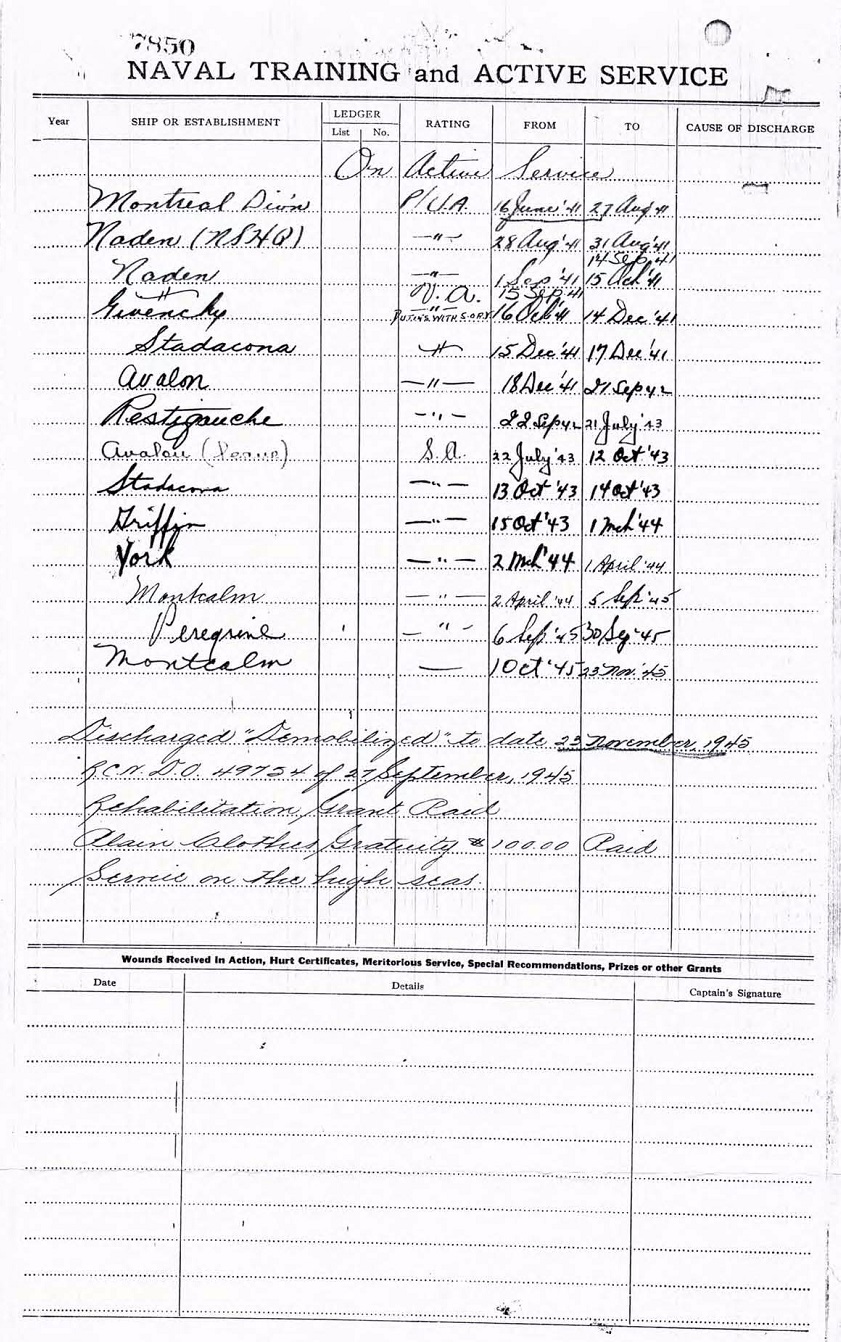 7850
NAVAL TRAINING and ACTIVE SERVICE
Year SHIP OR ESTABLISHMENT LEDGER List No. RATING FROM TO CAUSE OF DISCHARGE
On Active Service
Montreal Div'n P/V.A. 16 June '41 27 Aug '41
Naden (NSHQ) —"— 28 Aug '41 31 Aug '41
14 Sep '41
Naden —"— 1 Sep '41 15 Oct '41
" V.A. 15 Sep '41
Givenchy 16 Oct '41 14 Dec '41
Stadacona —"— 15 Dec '41 17 Dec '41
Avalon —"— 18 Dec '41 21 Sep 42
Restigouche —"— 22 Sep 42 21 July '43
Avalon S.A. 22 July '43 12 Oct '43
Stadacona —"— 13 Oct '43 14 Oct '43
Griffin —"— 15 Oct '43 1 Mch '44
York —"— 2 Mch '44 1 April '44
Montcalm —"— 2 April '44 5 Sep '45
Peregrine —"— 6 Sep '45 30 Sep '45
Montcalm — 1 Oct '45 23 Nov. '45
Discharged "Demobilized" to date 23 November, 1945
R.C.N. D.O. 49734 of 27 September, 1945
Rehabilitation Grant Paid
Plain Clothes Gratuity $100.00 Paid
Service on the high seas.
Wounds Received in Action, Hurt Certificates, Meritorious Service, Special Recommendations, Prizes or other Grants
Date Details Captain's Signature